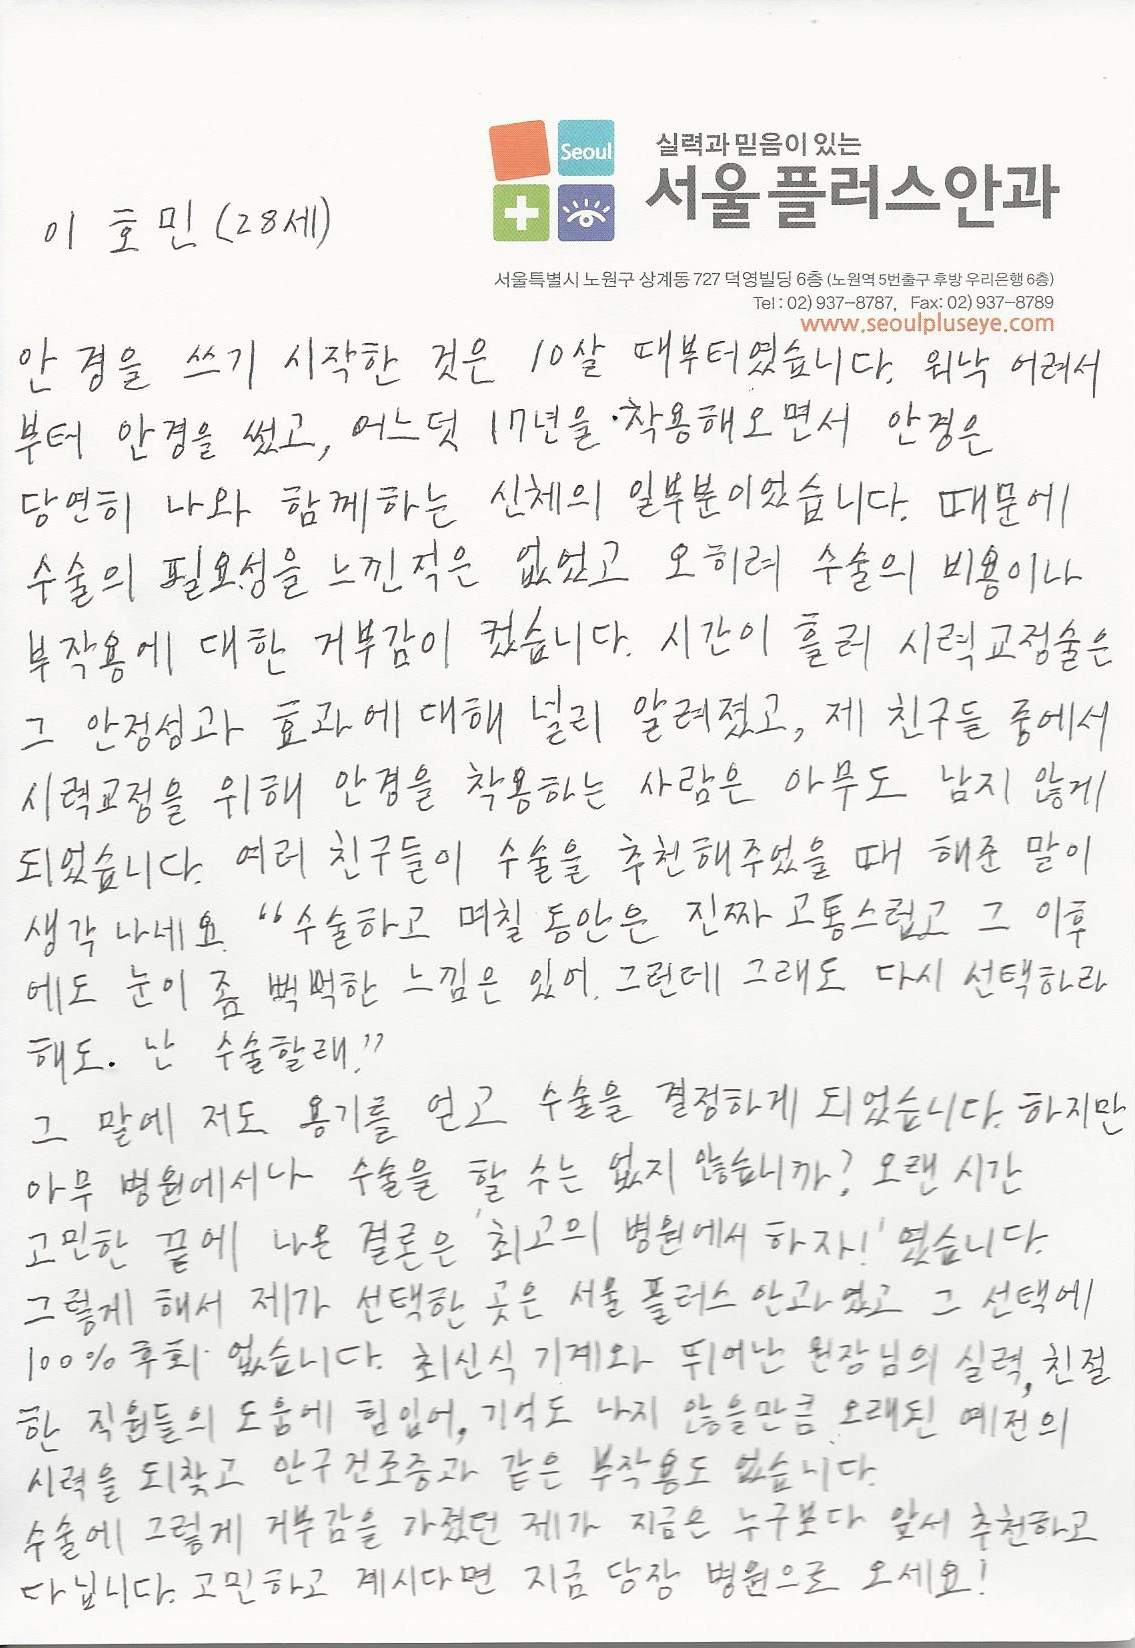 Seoul
실력과 믿음이 있는
서울플러스안과
이호민 (28세)
서울특별시 노원구 상계동 727 덕영빌딩 6층 (노원역 5번출구 후방 우리은행 6층)
Tel : 02) 937-8787,   Fax: 02) 937-8789
www.seoulpluseye.com
안경을 쓰기 시작한 것은 10살 때부터였습니다. 워낙 어려서
부터 안경을 썼고, 어느덧 17년을 착용해오면서 안경은
당연히 나와 함께하는 신체의 일부분이었습니다. 때문에
수술의 필요성을 느낀적은 없었고 오히려 수술의 비용이나
부작용에 대한 거부감이 컸습니다. 시간이 흘러 시력교정술은
그 안정성과 효과에 대해 널리 알려졌고, 제 친구들 중에서
시력교정을 위해 안경을 착용하는 사람은 아무도 남지 않게
되었습니다. 여러 친구들이 수술을 추천해주었을 때 해준 말이
생각 나네요. "수술하고 며칠 동안은 진짜 고통스럽고 그 이후
에도 눈이 좀 뻑뻑한 느낌은 있어. 그런데 그래도 다시 선택하라
해도. 난 수술할래."
그 말에 저도 용기를 얻고 수술을 결정하게 되었습니다. 하지만
아무 병원에서나 수술을 할 수는 없지 않습니까? 오랜 시간
고민한 끝에 나온 결론은 '최고의 병원에서 하자!' 였습니다.
그렇게 해서 제가 선택한 곳은 서울 플러스 안과였고 그 선택에
100% 후회 없습니다. 최신식 기계와 뛰어난 원장님의 실력, 친절
한 직원들의 도움에 힘입어, 기억도 나지 않을만큼 오래된 예전의
시력을 되찾고 안구건조증과 같은 부작용도 없습니다.
수술에 그렇게 거부감을 가졌던 제가 지금은 누구보다 앞서 추천하고
다닙니다. 고민하고 계시다면 지금 당장 병원으로 오세요!